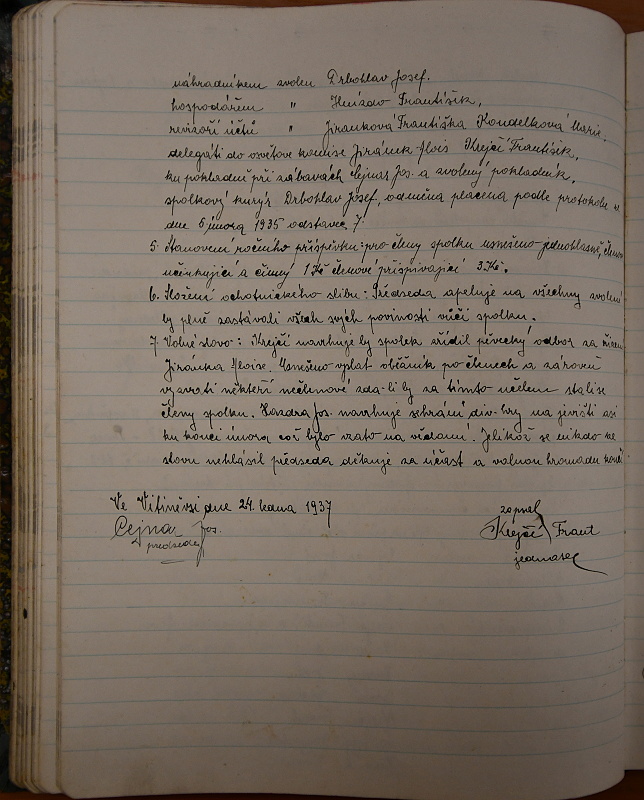 náhradníkem zvolen Drbohlav Josef.
hospodářem " Hnízdo František,
revizoři účtů " Jiránková Františka Kondelková Marie,
delegáti do osvětové komise Jiránek Alois Krejčí František,
ku pokladně při zábavách Cejnar Jos. a zvolený pokladník,
spolkový kurýr Drbohlav Josef, odměna placena podle protokolu z
dne 5 února 1935 odstavec 7.
5 Stanovení ročního příspěvku: pro členy spolku usneseno jednohlasně,
účinkující a činný 1 Kč členové přispívající 3 Kč.
6. Složení ochotnického slibu: Předseda apeluje na všechny zvolené
by plně zastávali všech svých povinosti vůči spolku.
7. Volné slovo: Krejčí navrhuje by spolek zřídil pěvecký odbor za řízení
Jiránka Aloise. Usneseno vyslat oběžník po členech a zároveň
vyzvati někteří nečlenové zda-li by za tímto účelem stali se
členy spolku. Jos. navrhuje sehrání div. hry na jevišti asi
ku konci února což bylo vzato na vědomí. Jelikož se nikdo ke
slovu nehlásil předseda děkuje za účast a valnou hromadu končí.
Ve Vitiněvsi dne 24. ledna 1937
zapsal
Cejnar Jos.
Krejčí Frant
předseda
jednatel